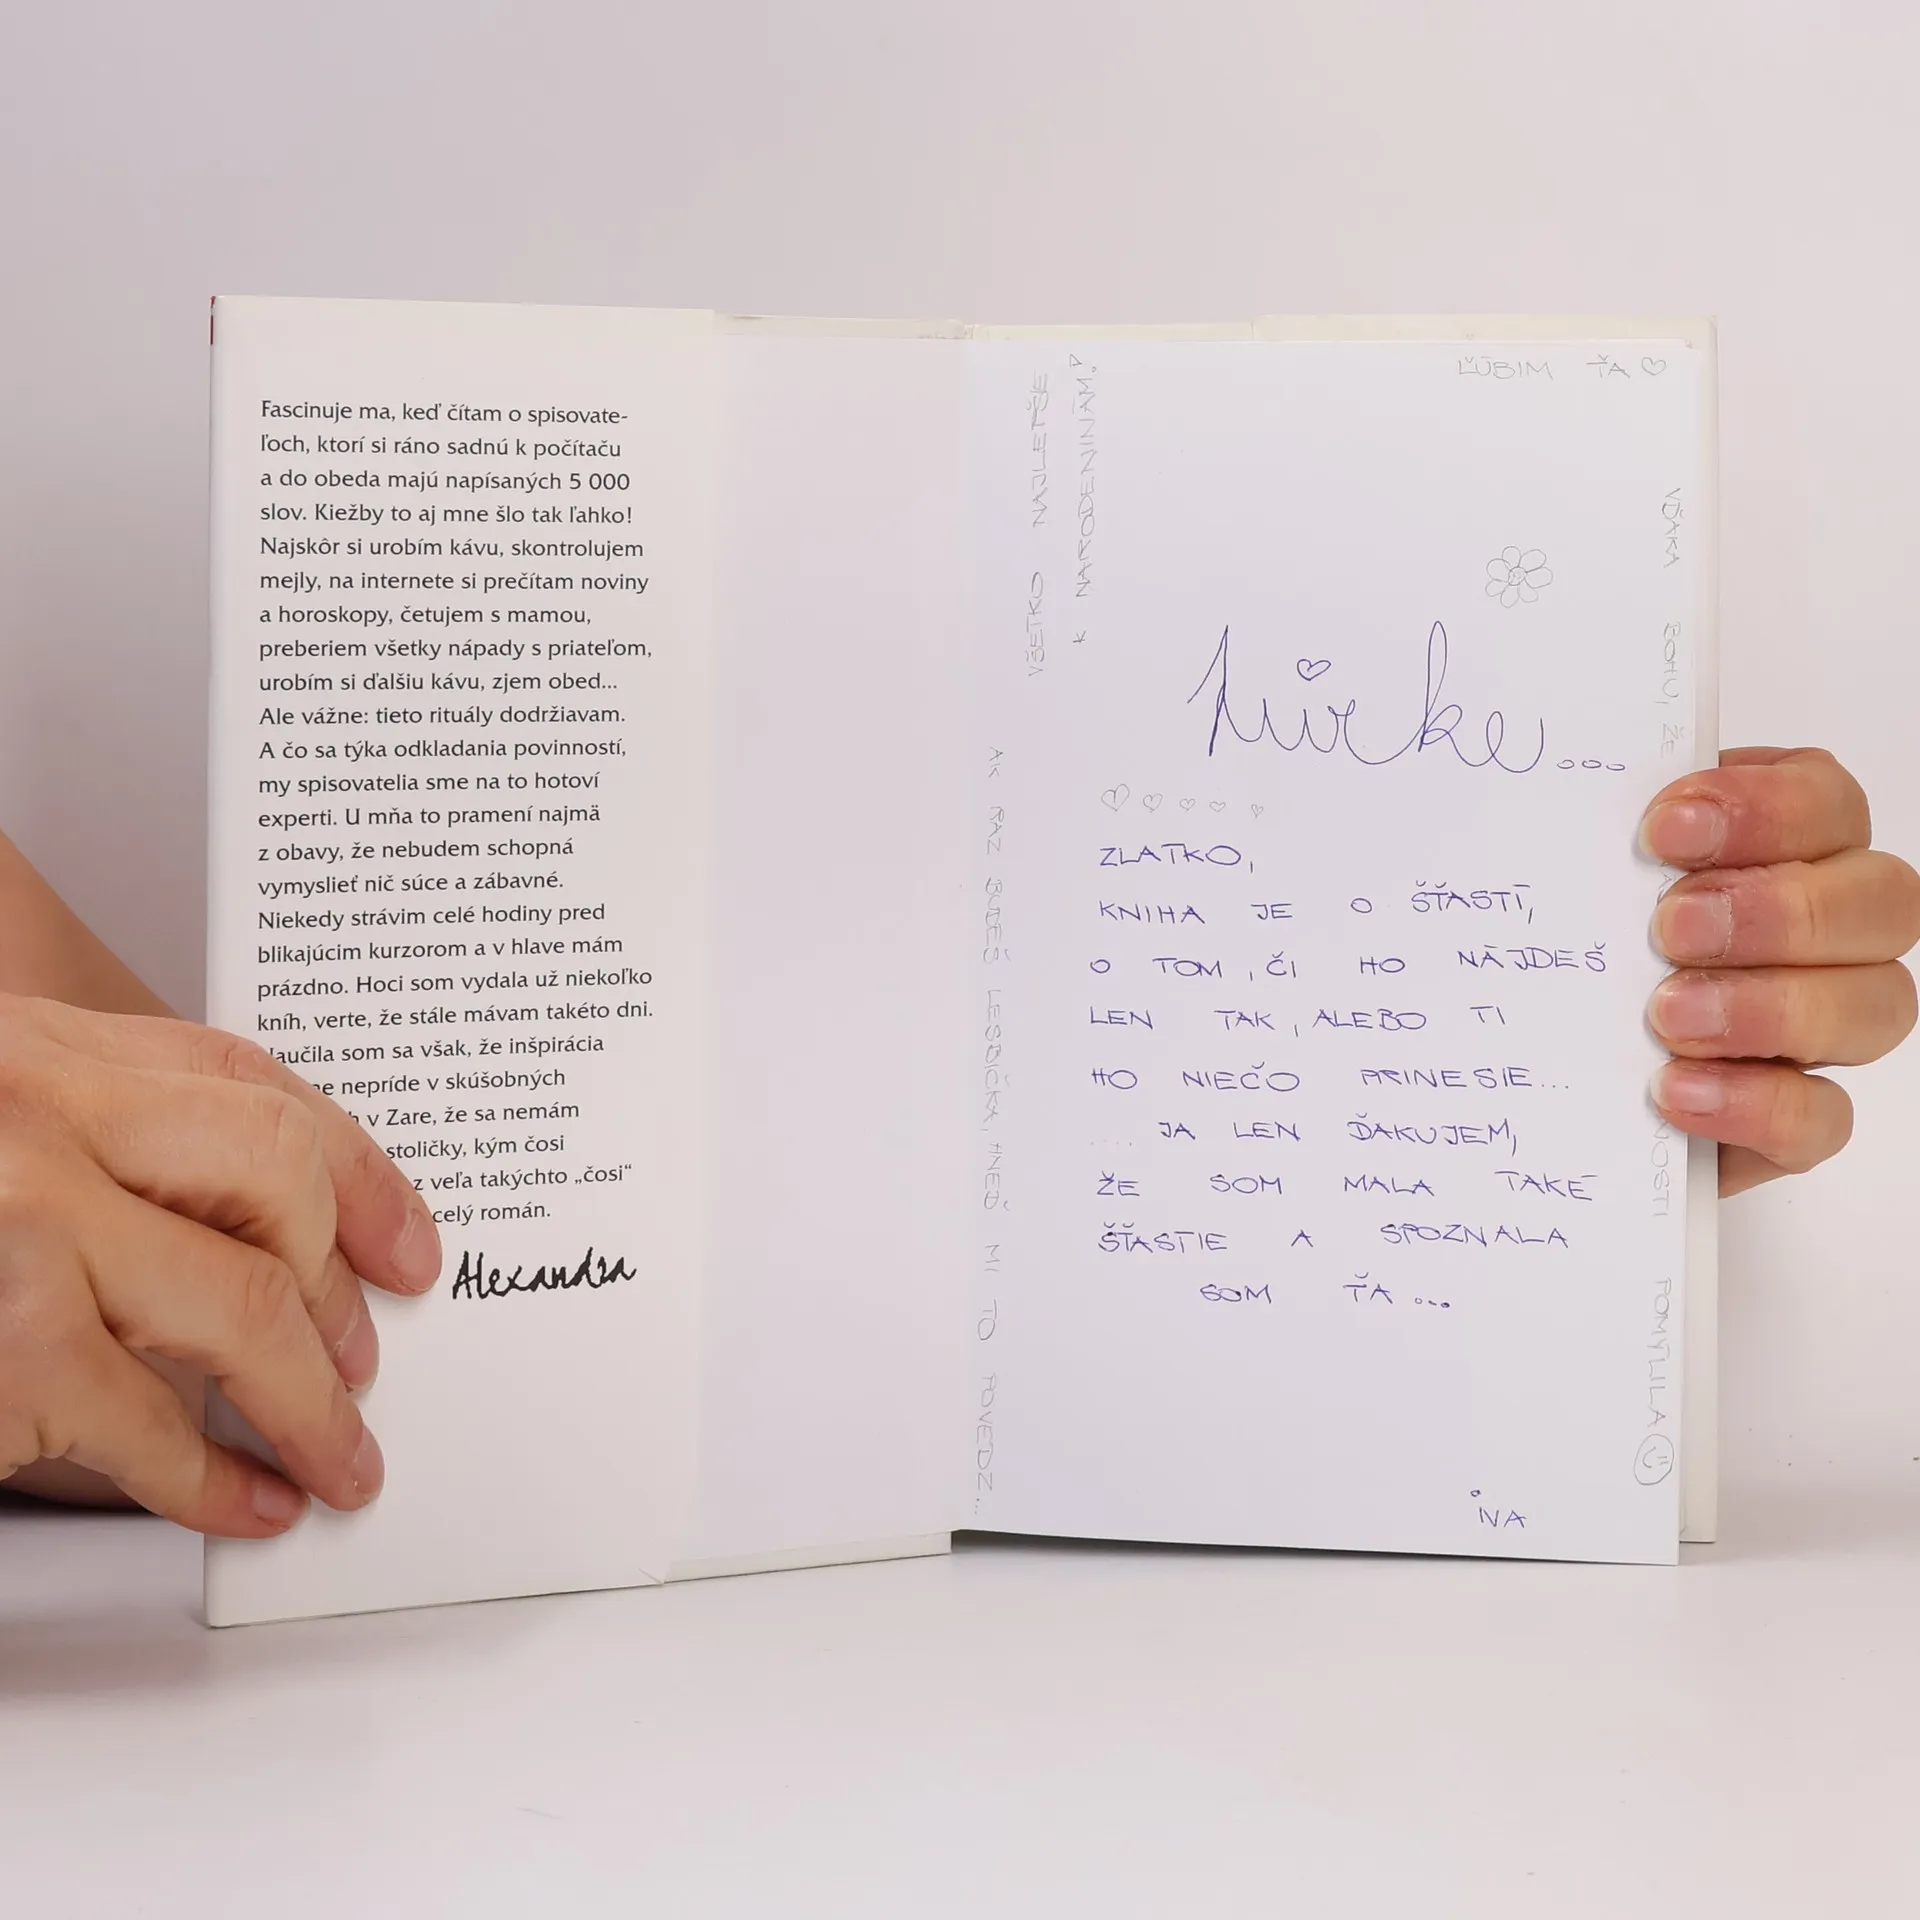 Fascinuje ma, keď čítam o spisovate-
ľoch, ktorí si ráno sadnú k počítaču
a do obeda majú napísaných 5 000
slov. Kiežby to aj mne šlo tak ľahko!
Najskôr si urobím kávu, skontrolujem
mejly, na internete si prečítam noviny
a horoskopy, četujem s mamou,
preberiem všetky nápady s priateľom,
urobím si ďalšiu kávu, zjem obed...
Ale vážne: tieto rituály dodržiavam.
A čo sa týka odkladania povinností,
my spisovatelia sme na to hotoví
experti. U mňa to pramení najmä
z obavy, že nebudem schopná
vymyslieť nič súce a zábavné.
Niekedy strávim celé hodiny pred
blikajúcim kurzorom a v hlave mám
prázdno. Hoci som vydala už niekoľko
kníh, verte, že stále mávam takéto dni.
som sa však, že inšpirácia
nepríde v skúšobných
v Zare, že sa nemám
stoličky, kým čosi
z veľa takýchto „čosi“
celý román.
Alexandra
VŠETKO NAJLEPŠIE
K NARODENINÁM!
ĽÚBIM ŤA ♡
Mirke...
ZLATKO,
KNIHA JE O ŠŤASTÍ,
O TOM, ČI HO NÁJDEŠ
LEN TAK, ALEBO TI
HO NIEČO PRINESIE...
.... JA LEN ĎAKUJEM,
ŽE SOM MALA TAKÉ
ŠŤASTIE A SPOZNALA
SOM ŤA ...
IVA
AK RAZ BUDEŠ LESBIČKA, HNEĎ MI TO POVEDZ...
VĎAKA BOHU, ŽE POMÝLILA